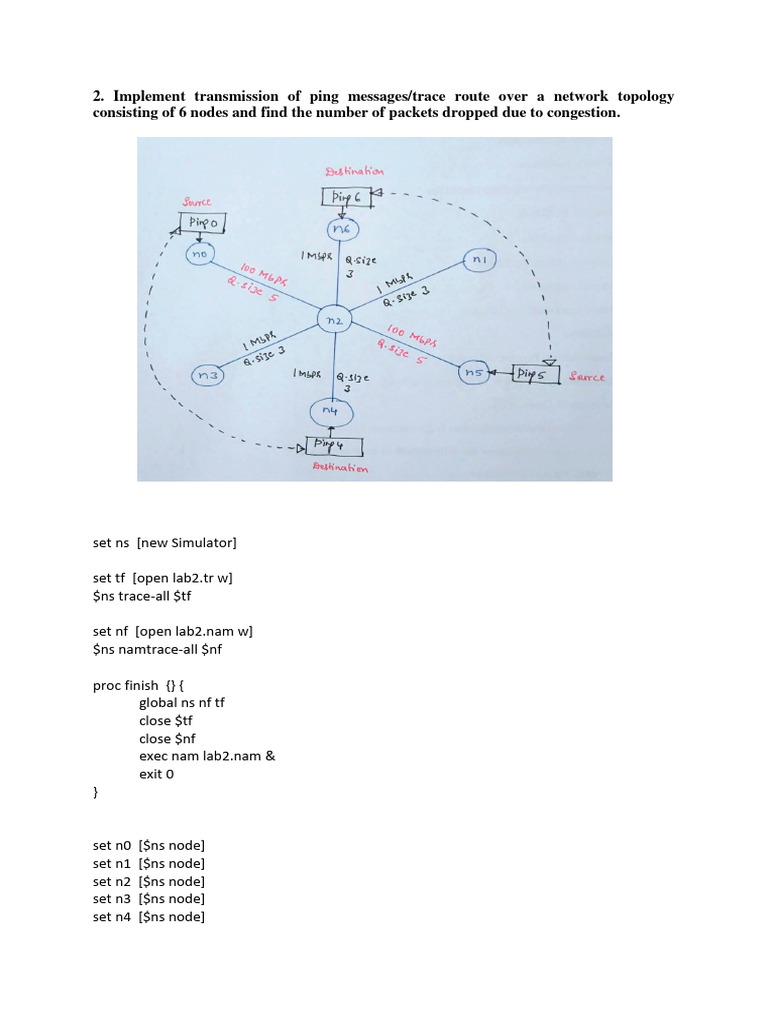 2. Implement transmission of ping messages/trace route over a network topology
consisting of 6 nodes and find the number of packets dropped due to congestion.
Destination
Ping 6
Source
Ping 0
n6
n0
1 Mbps Q-size
3
n1
100 Mbps
Q-size 5
1 Mbps
Q-size 3
n2
1 Mbps
Q-size 3
100 Mbps
Q-size 5
n3
1 Mbps Q-size
3
n5
Ping 5
Source
n4
Ping 4
Destination
set ns [new Simulator]
set tf [open lab2.tr w]
$ns trace-all $tf
set nf [open lab2.nam w]
$ns namtrace-all $nf
proc finish {} {
global ns nf tf
close $tf
close $nf
exec nam lab2.nam &
exit 0
}
set n0 [$ns node]
set n1 [$ns node]
set n2 [$ns node]
set n3 [$ns node]
set n4 [$ns node]